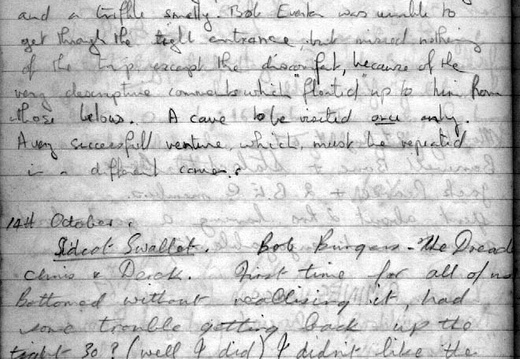 and a trifle smelly. Bob Evans was unable to
get through the tight entrance, but missed nothing
of the trip except the discomfort, because of the
very descriptive comments which "floated" up to him from
those below. A cave to be visited once only.
A very successfull venture, which must be repeated
in a different cave.
14th October.
Sidcot Swallet. Bob Burgess - The Dread
Chris & Derek. First time for all of us
bottomed without reallising it, had
some trouble getting back up the
tight 30? (well I did) I didn't like the